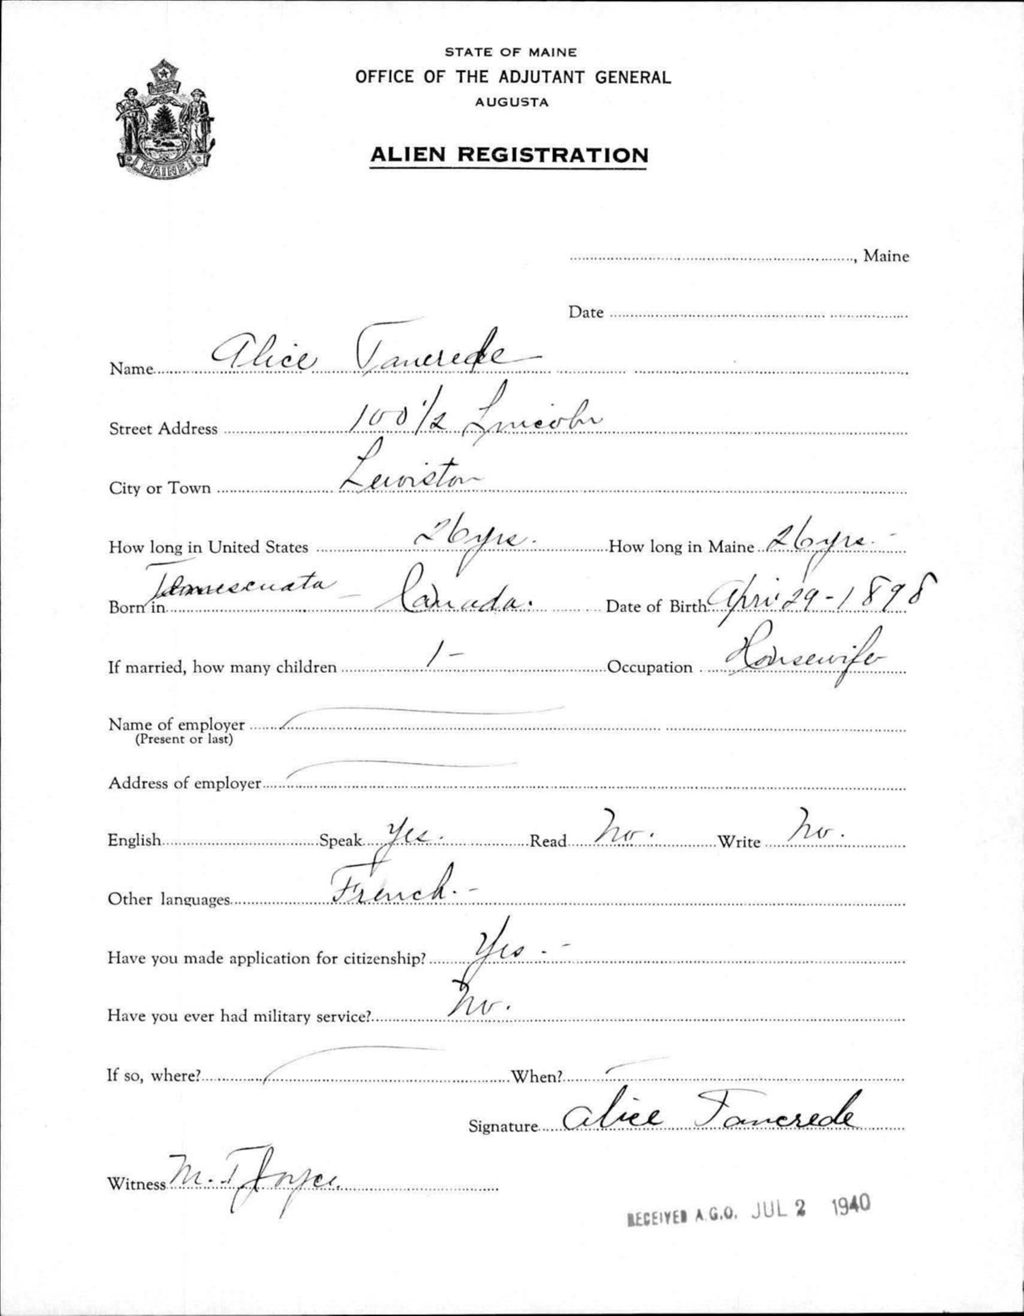 STATE OF MAINE
OFFICE OF THE ADJUTANT GENERAL
AUGUSTA
ALIEN REGISTRATION
MAINE
, Maine
Date
Name Alice Tancrede
Street Address 100 1/2 Lincoln
City or Town Lewiston
How long in United States 26 yrs. How long in Maine 26 yrs. -
Born in Temiscuata - Canada. Date of Birth April 29 - 1898
If married, how many children 1 - Occupation Housewife
Name of employer
(Present or last)
Address of employer
English Speak Yes. Read No. Write No.
Other languages French. -
Have you made application for citizenship? Yes. -
Have you ever had military service? No.
If so, where? When?
Signature Alice Tancrede
Witness M. T. Joyce.
RECEIVED A.G.O. JUL 2 1940